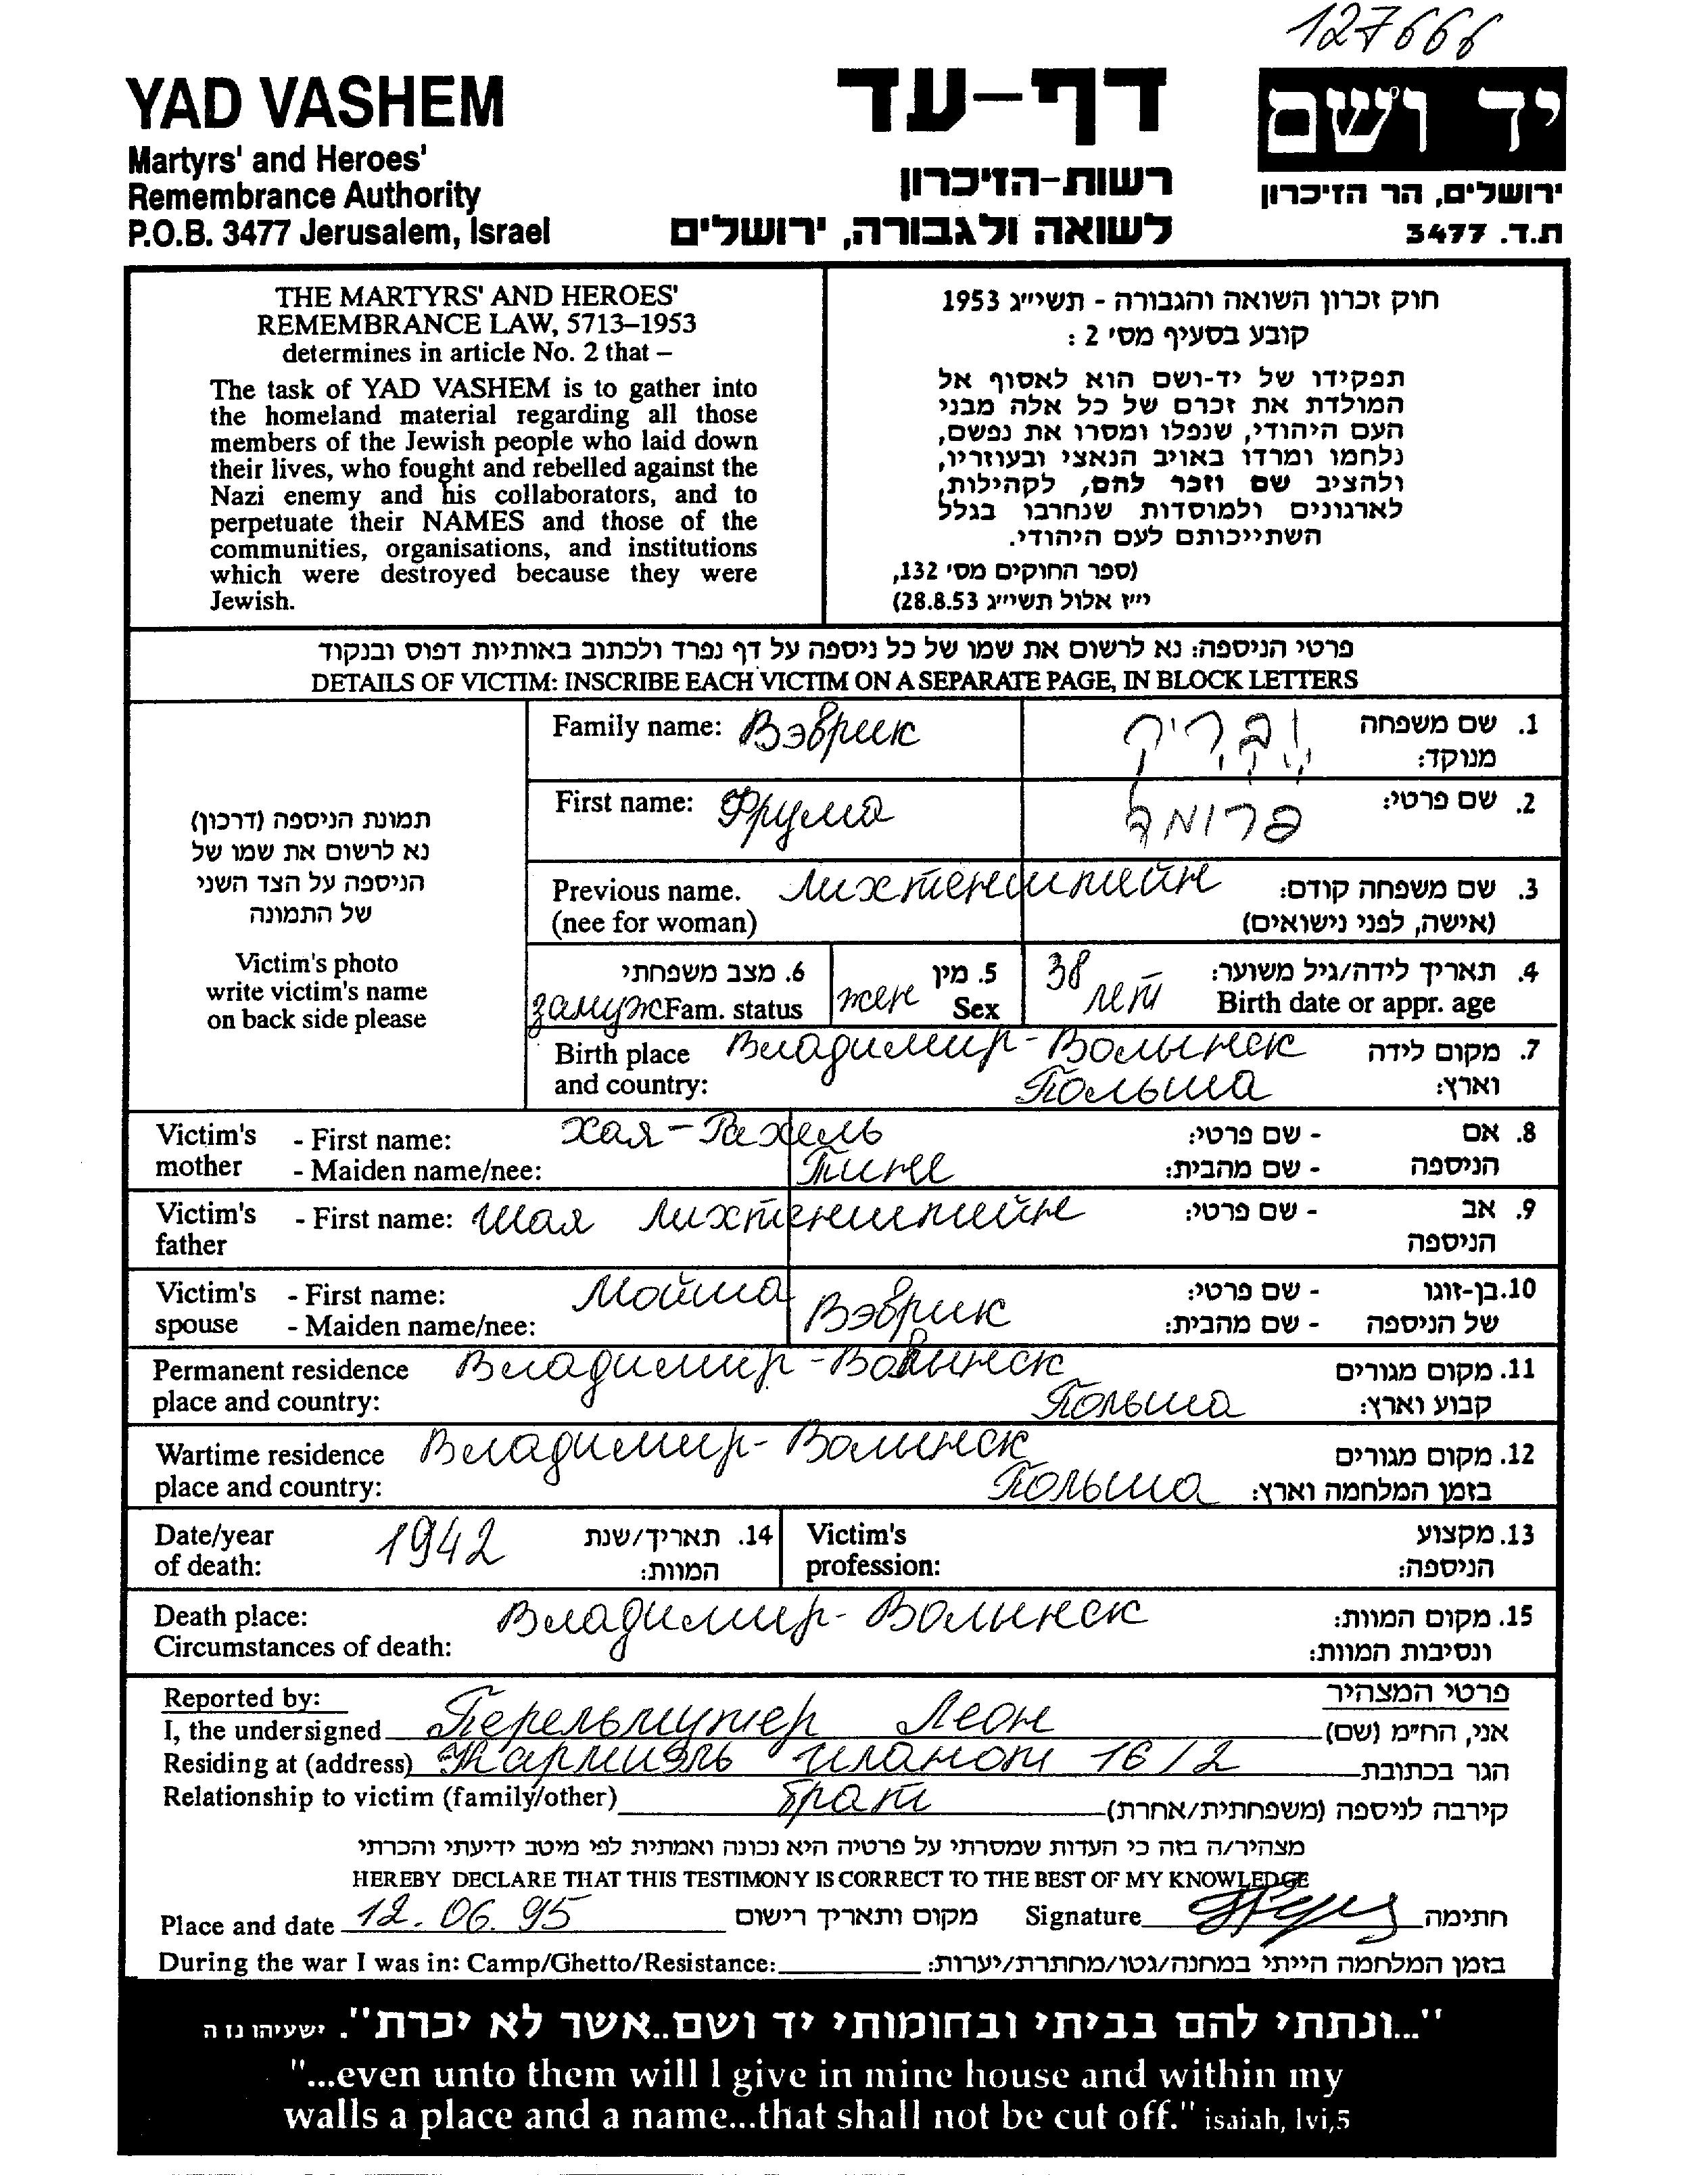 127666
YAD VASHEM
Martyrs' and Heroes'
Remembrance Authority
P.O.B. 3477 Jerusalem, Israel
דף-עד
רשות-הזיכרון
לשואה ולגבורה, ירושלים
יד ושם
ירושלים, הר הזיכרון
ת.ד. 3477
THE MARTYRS' AND HEROES'
REMEMBRANCE LAW, 5713–1953
determines in article No. 2 that –
The task of YAD VASHEM is to gather into
the homeland material regarding all those
members of the Jewish people who laid down
their lives, who fought and rebelled against the
Nazi enemy and his collaborators, and to
perpetuate their NAMES and those of the
communities, organisations, and institutions
which were destroyed because they were
Jewish.
חוק זכרון השואה והגבורה - תשי״ג 1953
קובע בסעיף מס׳ 2 :
תפקידו של יד-ושם הוא לאסוף אל
המולדת את זכרם של כל אלה מבני
העם היהודי, שנפלו ומסרו את נפשם,
נלחמו ומרדו באויב הנאצי ובעוזריו,
ולהציב שם וזכר להם, לקהילות,
לארגונים ולמוסדות שנחרבו בגלל
השתייכותם לעם היהודי.
(ספר החוקים מס׳ 132,
י״ז אלול תשי״ג 28.8.53)
פרטי הניספה: נא לרשום את שמו של כל ניספה על דף נפרד ולכתוב באותיות דפוס ובנקוד
DETAILS OF VICTIM: INSCRIBE EACH VICTIM ON A SEPARATE PAGE, IN BLOCK LETTERS
תמונת הניספה (דרכון)
נא לרשום את שמו של
הניספה על הצד השני
של התמונה
Victim's photo
write victim's name
on back side please
Family name: Вэврик וֶבְרִיק 1. שם משפחה
מנוקד:
First name: Фрума פרומה 2. שם פרטי:
Previous name. Лихтенштейн 3. שם משפחה קודם:
(nee for woman) (אישה, לפני נישואים)
6. מצב משפחתי 5. מין 38 4. תאריך לידה/גיל משוער:
замуж Fam. status жен Sex лет Birth date or appr. age
Birth place Владимир-Волынск 7. מקום לידה
and country: Польша וארץ:
Victim's - First name: Хая-Рахель - שם פרטי: 8. אם
mother - Maiden name/nee: - שם מהבית: הניספה
Victim's - First name: Шая Лихтенштейн - שם פרטי: 9. אב
father הניספה
Victim's - First name: Мойша - שם פרטי: 10. בן-זוגו
spouse - Maiden name/nee: Вэврик - שם מהבית: של הניספה
Permanent residence Владимир-Волынск 11. מקום מגורים
place and country: Польша קבוע וארץ:
Wartime residence Владимир-Волинск 12. מקום מגורים
place and country: Польша בזמן המלחמה וארץ:
Date/year 1942 14. תאריך/שנת Victim's 13. מקצוע
of death: המוות: profession: הניספה:
Death place: Владимир-Волинск 15. מקום המוות:
Circumstances of death: ונסיבות המוות:
Reported by: פרטי המצהיר
I, the undersigned Перельмутер Леон אני, הח״מ (שם)
Residing at (address) Кармиэль иланот 16/2 הגר בכתובת
Relationship to victim (family/other) брат קירבה לניספה (משפחתית/אחרת)
מצהיר/ה בזה כי העדות שמסרתי על פרטיה היא נכונה ואמתית לפי מיטב ידיעתי והכרתי
HEREBY DECLARE THAT THIS TESTIMONY IS CORRECT TO THE BEST OF MY KNOWLEDGE
Place and date 12.06.95 מקום ותאריך רישום Signature חתימה
During the war I was in: Camp/Ghetto/Resistance: בזמן המלחמה הייתי במחנה/גטו/מחתרת/יערות:
"...ונתתי להם בביתי ובחומותי יד ושם..אשר לא יכרת". ישעיהו נו ה
"...even unto them will I give in mine house and within my
walls a place and a name...that shall not be cut off." isaiah, lvi,5